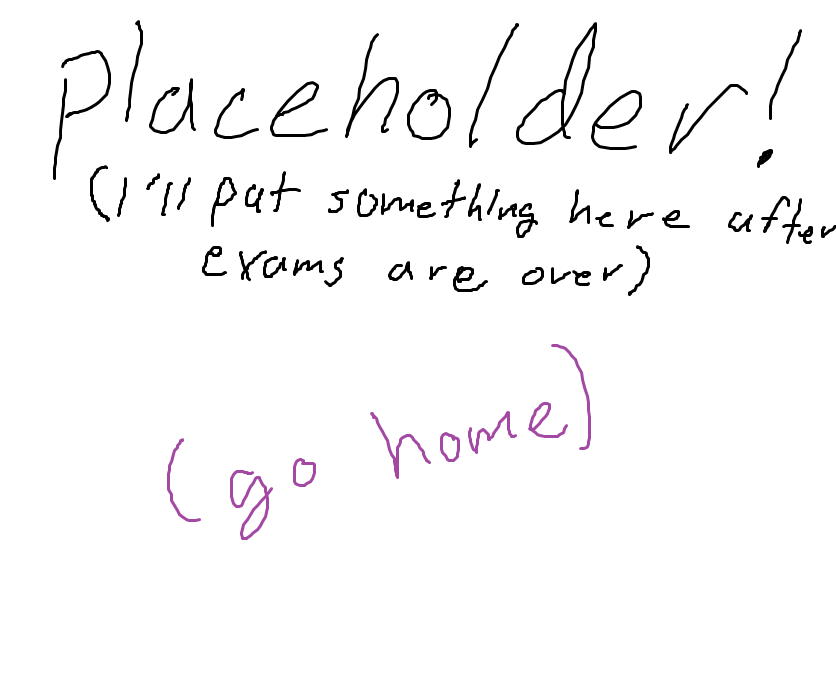 Placeholder!
(I'll put something here after
exams are over)
(go home)